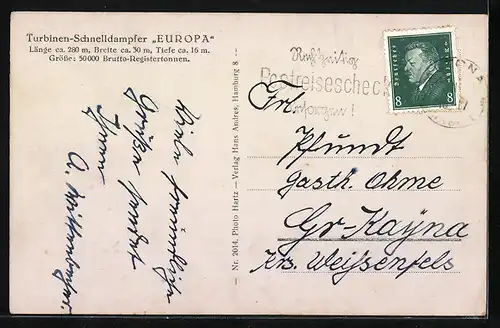 Turbinen-Schnelldampfer „EUROPA“
Länge ca. 280 m, Breite ca. 30 m, Tiefe ca. 16 m.
Größe: 50000 Brutto-Registertonnen.
Viele freundliche
Grüße sendet
Ihnen
A.
Nr. 2014. Photo Hartz — Verlag Hans Andres, Hamburg 8.
Rechtzeitig
Postreisescheck
besorgen!
Deutsches Reich
8 8
Frl.
Pfundt
Gasth. Ohme
Gr-Kayna
Krs. Weißenfels